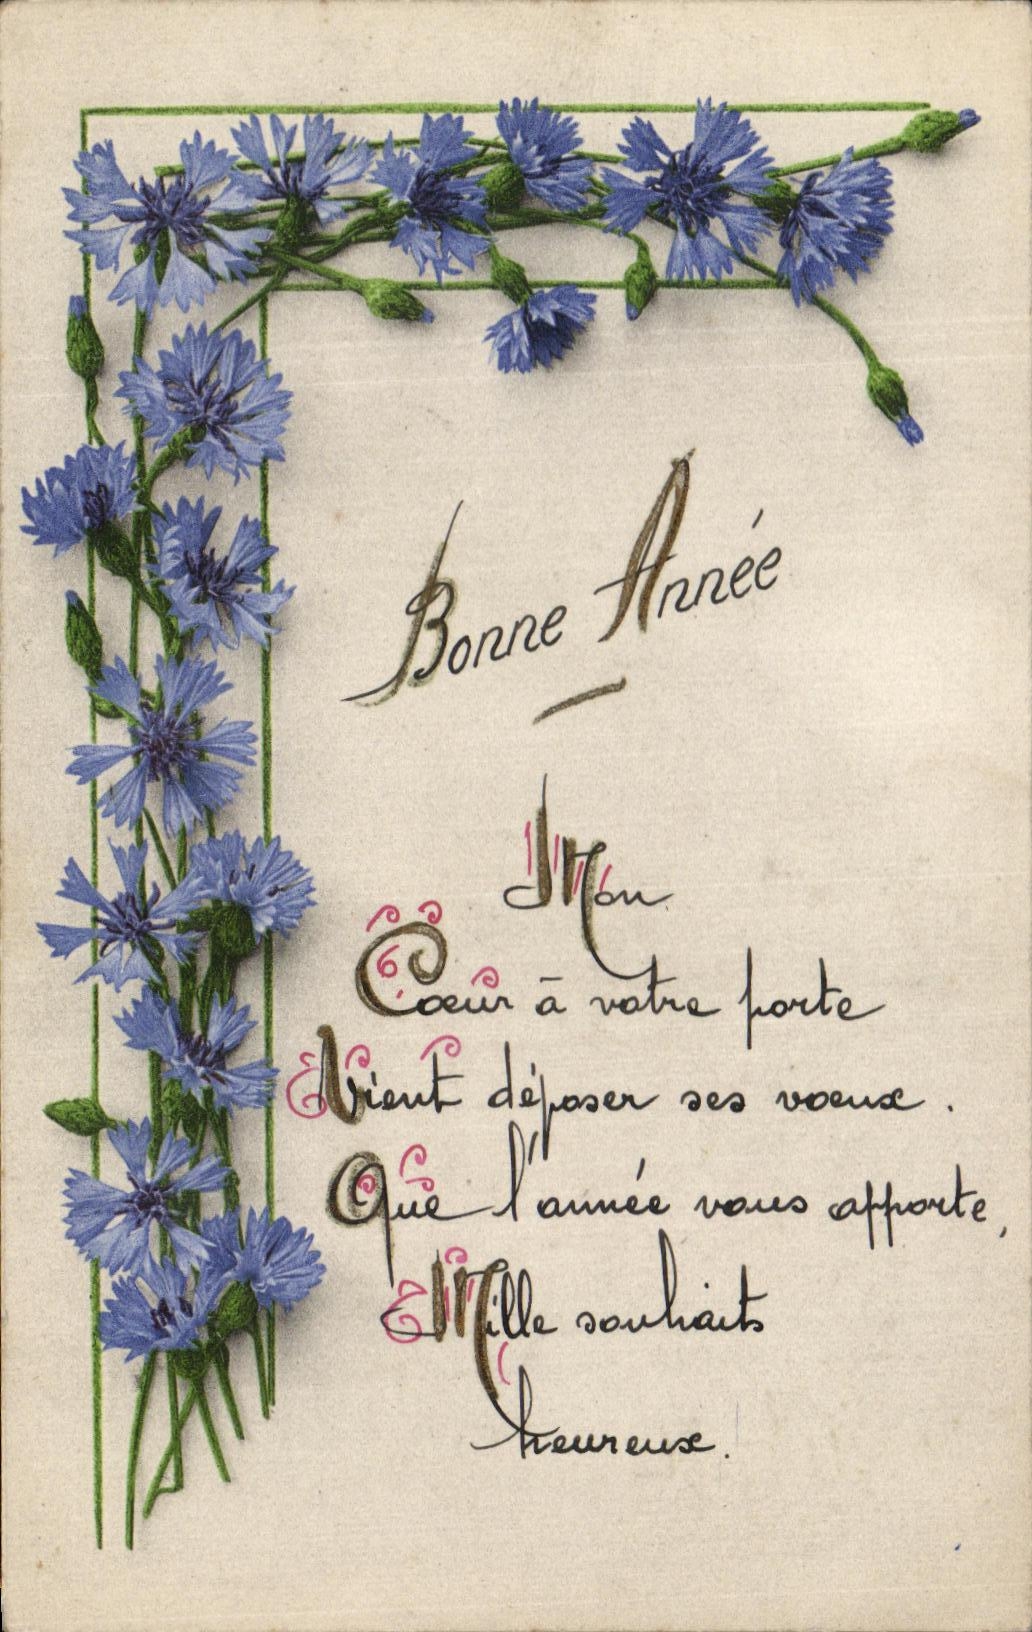 Bonne Année
Mon
Cœur à votre porte
Vient déposer ses voeux.
Que l'année vous apporte,
Mille souhaits
heureux.